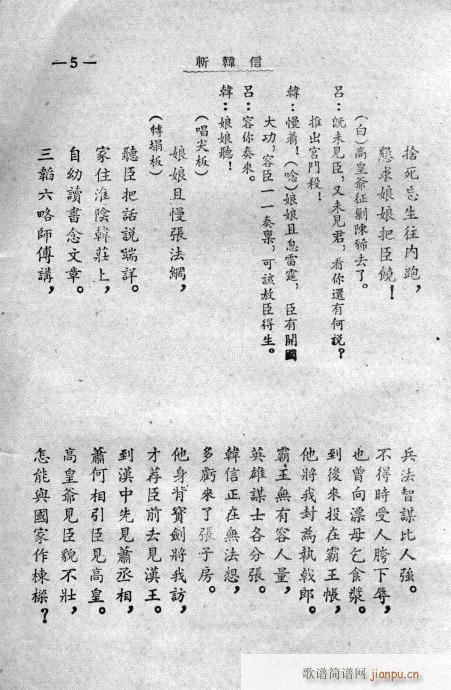 —5—
斬韓信
捨死忘生往內跑，
懇求娘娘把臣饒！
（白）高皇爺征剿陳豨去了。
呂：旣未見臣，又未見君，看你還有何說？
推出宮門殺！
韓：慢着！（唸）娘娘且息雷霆，臣有開國
大功，容臣一一奏稟，可該赦臣得生。
呂：容你奏來。
韓：娘娘聽！
（唱尖板）
娘娘且慢張法網，
（轉塌板）
聽臣把話說端詳。
家住淮陰韓莊上，
自幼讀書念文章。
三韜六略師傅講，
兵法智謀比人強。
不得時受人胯下辱，
也曾向漂母乞食漿。
到後來投在霸王帳，
他將我封為執戟郎。
霸王無有容人量，
英雄謀士各分張。
韓信正在無法想，
多虧來了張子房。
他身背寶劍將我訪，
才荐臣前去見漢王。
到漢中先見蕭丞相，
蕭何相引臣見高皇。
高皇爺見臣貌不壯，
怎能與國家作棟樑？
歌谱简谱网
jianpu.cn